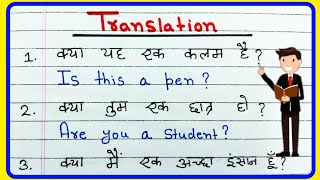 Translation
1. क्या यह एक कलम है ?
Is this a pen ?
2. क्या तुम एक छात्र हो ?
Are you a student ?
3. क्या मैं एक अच्छा इंसान हूँ ?